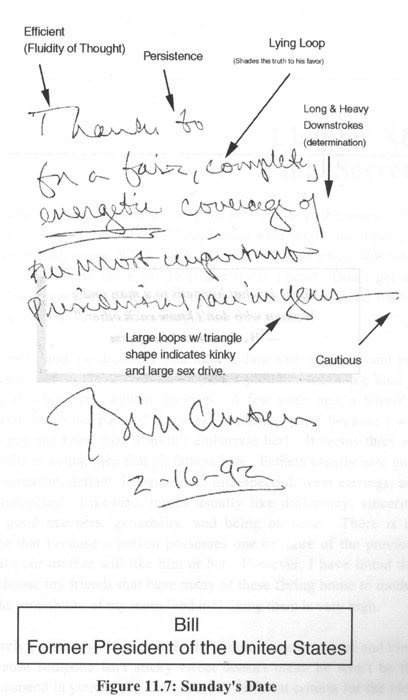 Efficient
(Fluidity of Thought)
Persistence
Lying Loop
(Shades the truth to his favor)
Long & Heavy
Downstrokes
(determination)
Thanks to
for a fair, complete,
energetic coverage of
the most important
Presidential race in years
Large loops w/ triangle
shape indicates kinky
and large sex drive.
Cautious
Bill Clinton
2-16-92
Bill
Former President of the United States
Figure 11.7: Sunday's Date